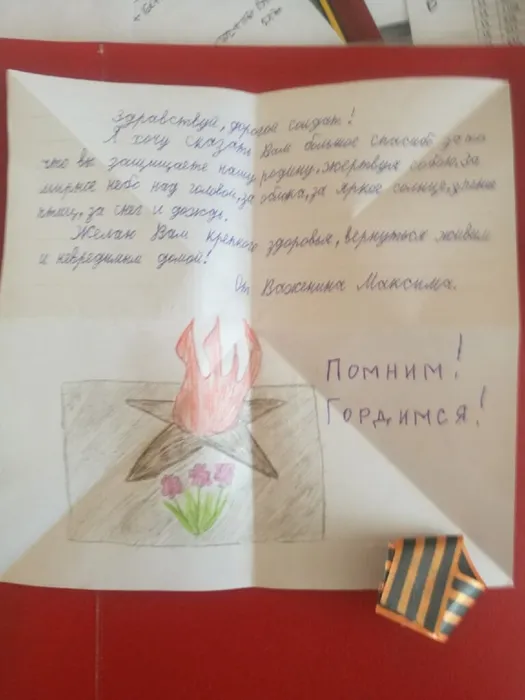 Здравствуй, дорогой солдат!
Я хочу сказать Вам большое спасибо за то
что вы защищаете нашу родину, жертвуя собою, за
мирное небо над головой, за облака, за яркое солнце, пение
птиц, за снег и дождь.
Желаю Вам крепкого здоровья, вернуться живым
и невредимым домой!
От Важенина Максима.
Помним!
Гордимся!